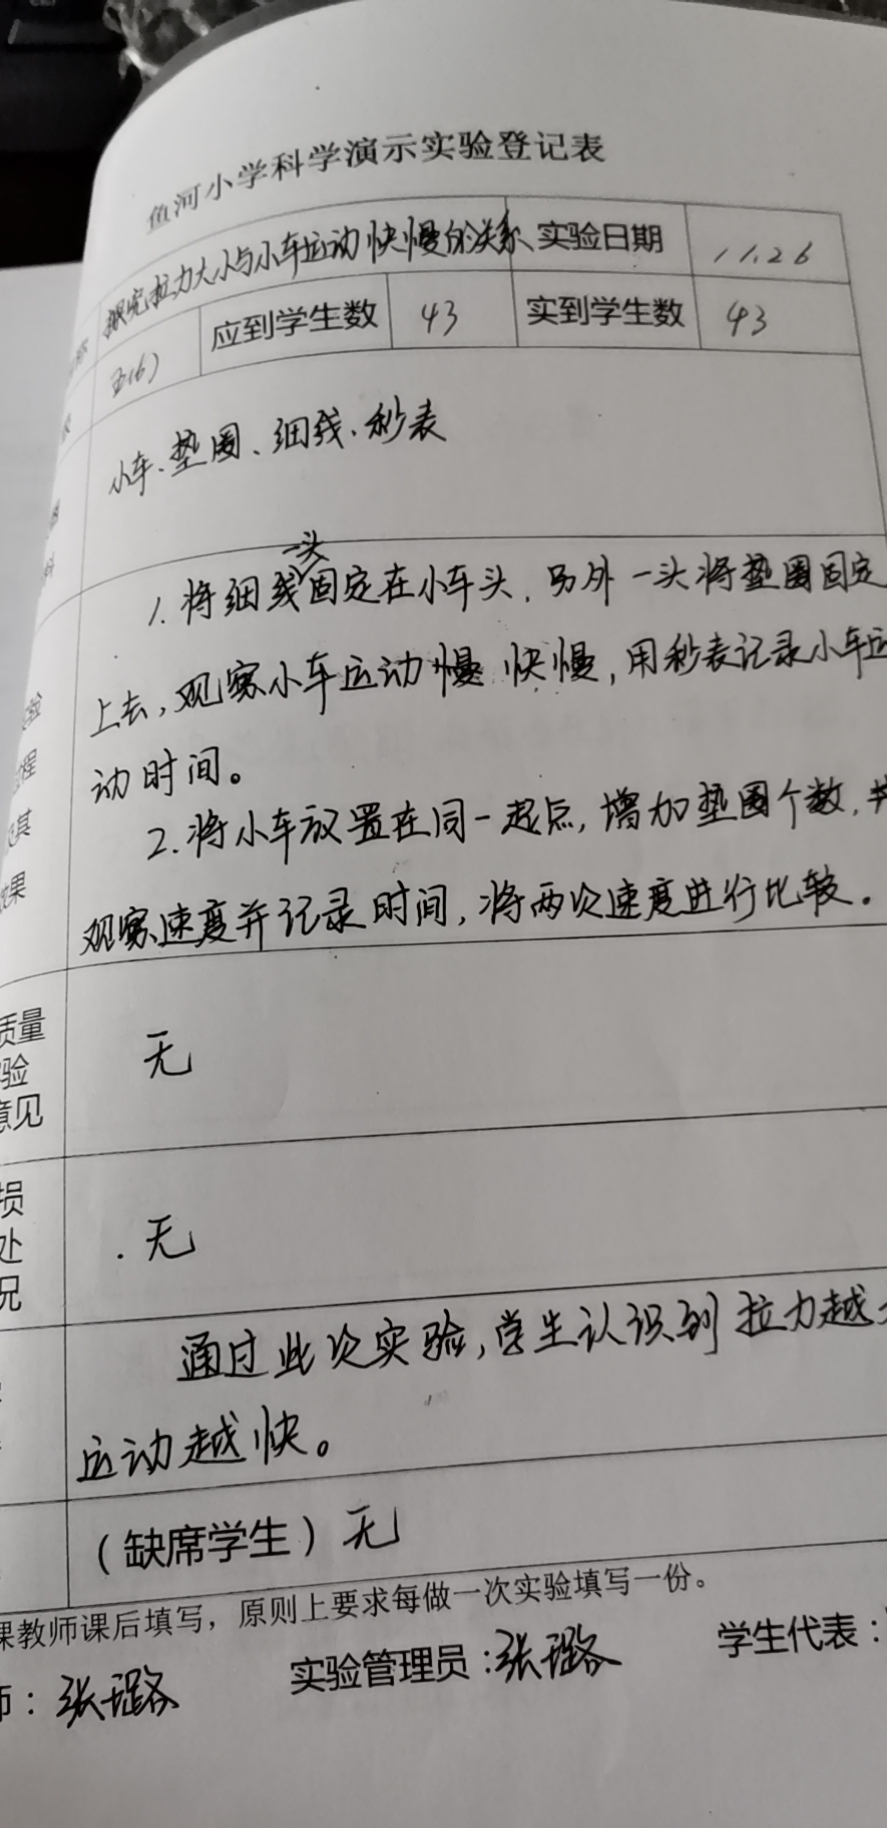 鱼河小学科学演示实验登记表
探究拉力大小与小车运动快慢的关系 实验日期 11.26
应到学生数 43 实到学生数 43
小车、垫圈、细线、秒表
一头
1. 将细线固定在小车头，另外一头将垫圈固定
上去，观察小车运动慢 快慢，用秒表记录小车运
动时间。
2. 将小车放置在同一起点，增加垫圈个数，
观察速度并记录时间，将两次速度进行比较。
验
程
其
效果
质量
验
意见
无
损
处
况
无
通过此次实验，学生认识到拉力越
运动越快。
（缺席学生）无
课教师课后填写，原则上要求每做一次实验填写一份。
师：张璐 实验管理员：张璐 学生代表：